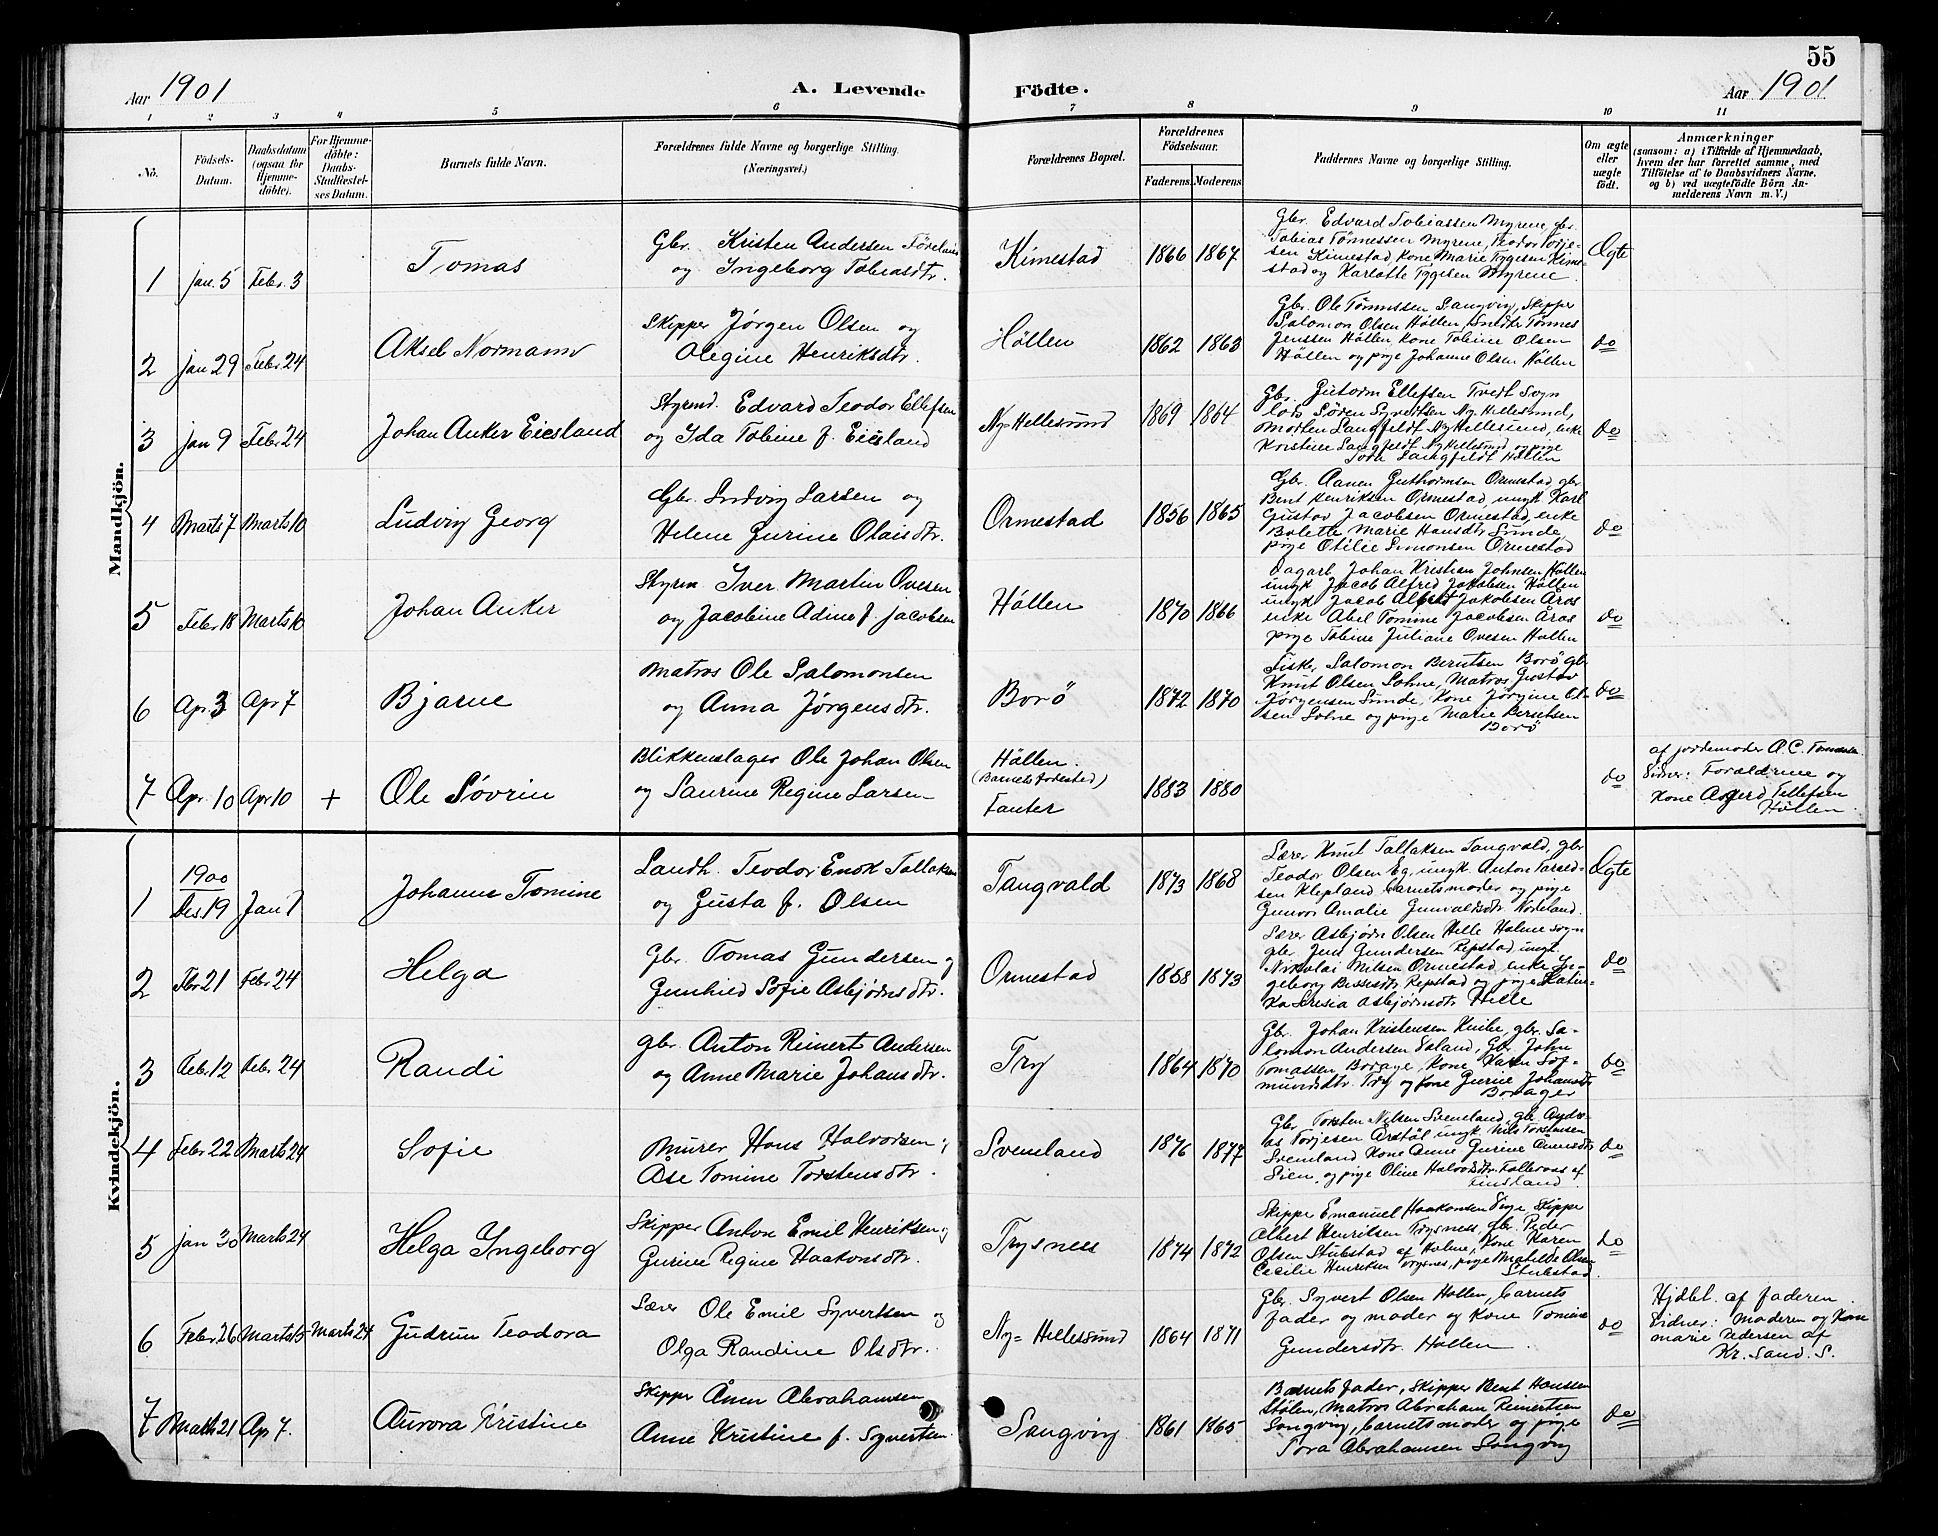 55
Aar 1901
A. Levende Födte.
Aar 1901
1 2 3 4 5 6 7 8 9 10 11
No.
Födsels-Datum.
Daabsdatum (ogsaa for Hjemme-döbte).
For Hjemme-döbte: Daabs-Stadfæstel-ses Datum.
Barnets fulde Navn.
Forældrenes fulde Navne og borgerlige Stilling.
(Næringsvei.)
Forældrenes Bopæl.
Forældrenes Födselsaar.
Faderens Moderens
Faddernes Navne og borgerlige Stilling.
Om ægte eller uægte født.
Anmærkninger
(saasom: a) i Tilfælde af Hjemmedaab,
hvem der har forrettet samme, med
Tilföielse af to Daabsvidners Navne,
og b) ved uægtefödte Börn An-
melderens Navn m. V.)
Mandkjön.
1 Jan. 5 Febr. 3 Tomas
Gbr. Kristen Andersen
og Ingeborg Tobiasdtr.
Kimestad 1866 1867
Gbr. Edvard Tobiassen Myrene, gbr.
Tobias Tønnessen Myrene, Teodor Torje-
sen Kimestad, Kone Marie Tygesen Kime-
stad og Karlotte Tygesen Myrene
Ægte
2 Jan 29 Febr 24 Aksel Normann
Skipper Jørgen Olsen og
Olegine Henriksdtr.
Höllen 1862 1863
Gbr. Ole Tønnessen Langvig, Skipper
Salomon Olsen Höllen, Tønnes
Jenssen Höllen, Kone Tobine Olsen
Höllen og pige Johanne Olsen Höllen
do
3 Jan 9 Febr 24 Johan Anker Eiesland
Styrmd. Edvard Teodor Ellefsen
og Ida Tobine f. Eiesland
Ny-Hellesund 1869 1864
Gbr. Gutorm Ellefsen Tvedt Sogn
lods Søren Syvertsen Ny Hellesund,
Morten Langfeldt Ny Hellesund, enke
Kristine Langfeldt Ny Hellesund og pige
Tora Langfeldt Höllen
do
4 Marts 7 Marts 10 Ludvig Georg
Gbr. Ludvig Larsen og
Helene Gurine Olaisdtr.
Ormestad 1856 1865
Gbr. Aanen Guthormsen Ormestad, gbr.
Bent Henriksen Ormestad, ungk Karl
Gustav Jacobsen Ormestad, enke
Bolette Marie Hansdtr. Sunde,
pige Otilie Simonsen Ormestad
do
5 Febr 18 Marts 10 Johan Anker
Styrm. Iver Martin Ovesen
og Jacobine Adine f. Jacobsen
Höllen 1870 1866
Dagarb. Johan Kristian Johnsen Höllen
ungk Jacob Alfred Jakobsen Höllen
ungk Jacob Alfred Jakobsen Åros
enke Abel Tomine Jacobsen Åros
pige Tobine Juliane Ovesen Höllen
do
6 Apr 3 Apr 7 Bjarne
Matros Ole Salomonsen
og Anna Jørgensdtr.
Borö 1872 1870
Fisker Salomon Berntsen Borö gbr
Knut Olsen Sohne, Matros Gustav
Jørgensen Sunde, Kone Jørgine Ol-
sen Sohne og pige Marie Berntsen
Borö
do
7 Apr. 10 Apr 10 + Ole Sövrin
Blikkenslager Ole Johan Olsen
og Laurine Regine Larsen
Höllen.
(Barnets fødested)
Fanter
1883 1880
do
af jordemoder A. C. Tønnessen
Vidner: Forældrene og
Kone Asgerd Tellefsen
Höllen.
Kvindekjön.
1 1900 Des 19 Jan 1 Johanne Tomine
Landh. Teodor Enok Tallaksen
og Gusta f. Olsen
Tangvald 1873 1868
Lærer Knut Tallaksen Tangvald, gbr
Teodor Olsen Eg, ungk Anton Tarald-
sen Klepland, barnets moder og pige
Gunvor Amalie Gunvaldsdtr. Nodeland.
Ægte
2 Febr 21 Febr 24 Helga
Gbr. Tomas Gundersen og
Gunhild Sofie Asbjørnsdtr.
Ormestad 1858 1873
Lærer Asbjørn Olsen Helle Halme sogn
gbr. Jens Gundersen Repstad, ungk.
Nikolai Nilsen Ormestad, enke In-
geborg Repstad og pige Katin-
ka Asbjørnsdtr Helle
do
3 Febr. 12 Febr. 24 Randi
gbr. Anton Reinert Andersen
og Anne Marie Johansdtr.
Try 1864 1870
Gbr. Johan Kristensen Knibe, gbr. Sa-
lomon Andersen, Gbr. John
Tomassen, Kone Karen Sig-
mundsdtr. Try og Kone Gurine Johansdtr
do
4 Febr 22 Marts 24 Sofie
Murer Hans Halvorsen og
Åse Tomine Torstensdtr.
Sveneland 1876 1877
Gbr Torsten Nilsen Sveneland, gbr Andre-
as Torjesen Årstöl ungk Nils Torstensen
Sveneland Kone Anne Gurine
og pige Oline Halvorsdtr. af
Finsland
do
5 Jan 30 Marts 24 Helga Ingeborg
Skipper Anton Emil Henriksen og
Gurine Regine Haakonsdtr.
Trysnes 1874 1872
Skipper Emanuel Haakonsen, Skipper
Albert Henriksen Trysnes, gbr. Peder
Olsen Stubstad af Halme, Kone Karen
Cecilie Henriksen Trysnes, pige Matilde Olsen
Stubstad
do
6 Febr. 26 Marts 15 Marts 24 Gudrun Teodora
Lærer Ole Emil Syvertsen og
Olga Randine Olsdtr.
Ny-Hellesund 1864 1871
Gbr. Syvert Olsen Höllen, barnets
fader og moder og Kone Tomine
Gundersdtr. Höllen.
do
Hjdbt. af faderen
Vidner: Moderen og Kone
Marie Pedersen af
Kr. Sand. S.
7 Marts 21 Apr 7. Aurora Kristine
Skipper Ånen Abrahamsen
Anne Kristine f. Syvertsen
Langvig 1861 1865
Barnets fader, Skipper Bent Hanssen
Stölen, Matros Abraham Reinertsen
Langvig, barnets moder og pige
Tora Abrahamsen Langvig
do